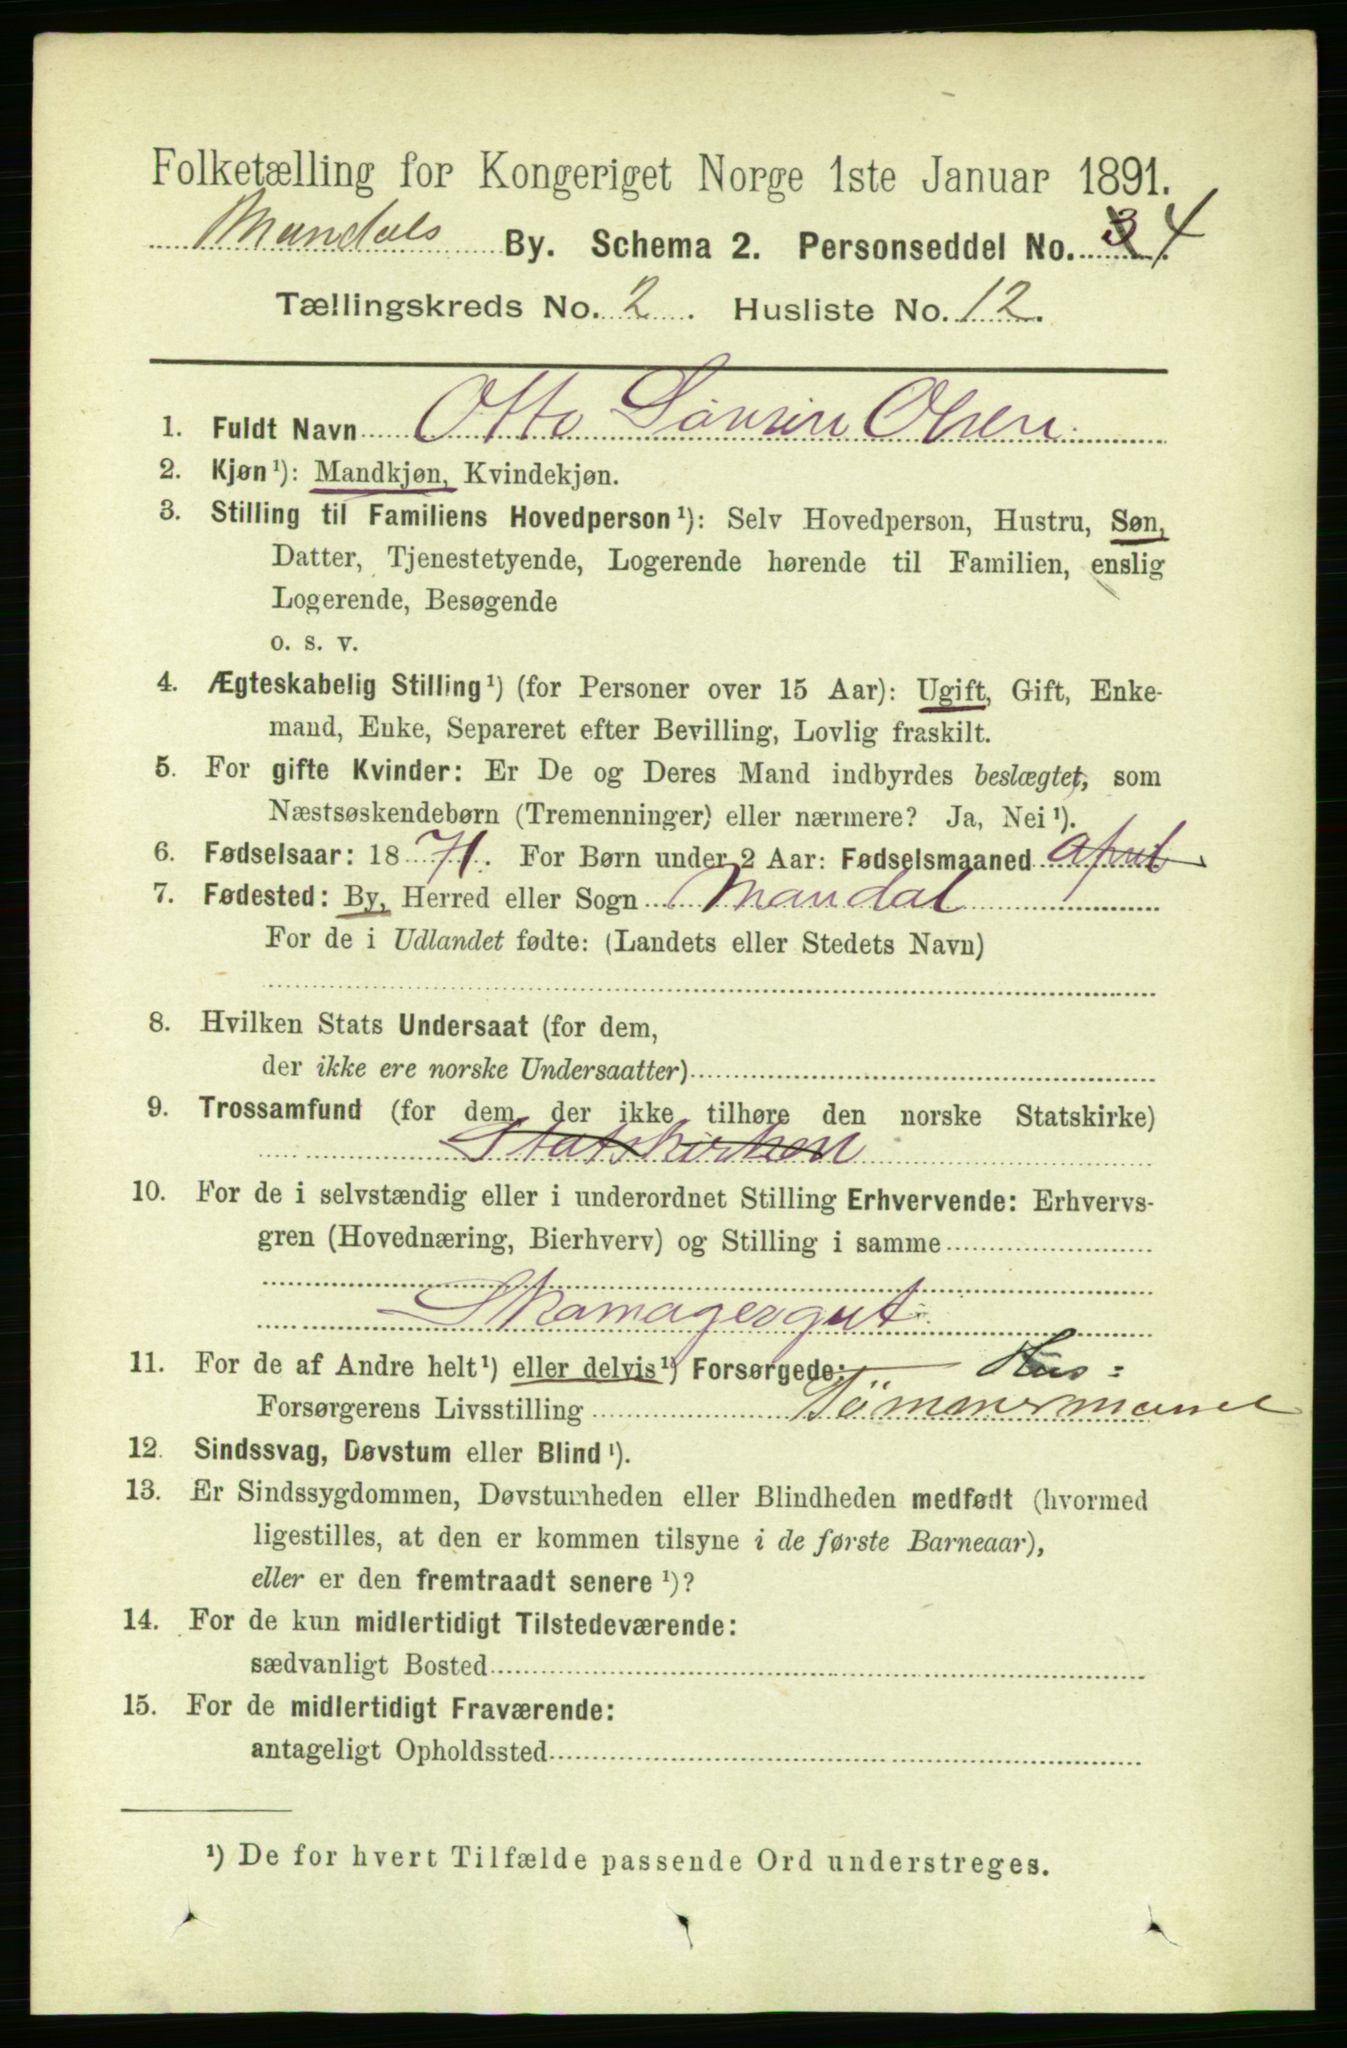 Folketælling for Kongeriget Norge 1ste Januar 1891.
Mandals By. Schema 2. Personseddel No. 3 4
Tællingskreds No. 2. Husliste No. 12.
1. Fuldt Navn Otto Olsen
2. Kjøn¹): Mandkjøn, Kvindekjøn.
3. Stilling til Familiens Hovedperson¹): Selv Hovedperson, Hustru, Søn,
Datter, Tjenestetyende, Logerende hørende til Familien, enslig
Logerende, Besøgende
o. s. v.
4. Ægteskabelig Stilling¹) (for Personer over 15 Aar): Ugift, Gift, Enke-
mand, Enke, Separeret efter Bevilling, Lovlig fraskilt.
5. For gifte Kvinder: Er De og Deres Mand indbyrdes beslægtet, som
Næstsøskendebørn (Tremenninger) eller nærmere? Ja, Nei¹).
6. Fødselsaar: 1871. For Børn under 2 Aar: Fødselsmaaned April
7. Fødested: By, Herred eller Sogn Mandal
For de i Udlandet fødte: (Landets eller Stedets Navn)
8. Hvilken Stats Undersaat (for dem,
der ikke ere norske Undersaatter)
9. Trossamfund (for dem der ikke tilhøre den norske Statskirke)
Statskirken
10. For de i selvstændig eller i underordnet Stilling Erhvervende: Erhvervs-
gren (Hovednæring, Bierhverv) og Stilling i samme
Skomagergut
11. For de af Andre helt¹) eller delvis¹) Forsørgede: Hus=
Forsørgerens Livsstilling Tömmermand
12. Sindssvag, Døvstum eller Blind¹).
13. Er Sindssygdommen, Døvstumheden eller Blindheden medfødt (hvormed
ligestilles, at den er kommen tilsyne i de første Barneaar),
eller er den fremtraadt senere¹)?
14. For de kun midlertidigt Tilstedeværende:
sædvanligt Bosted
15. For de midlertidigt Fraværende:
antageligt Opholdssted
¹) De for hvert Tilfælde passende Ord understreges.